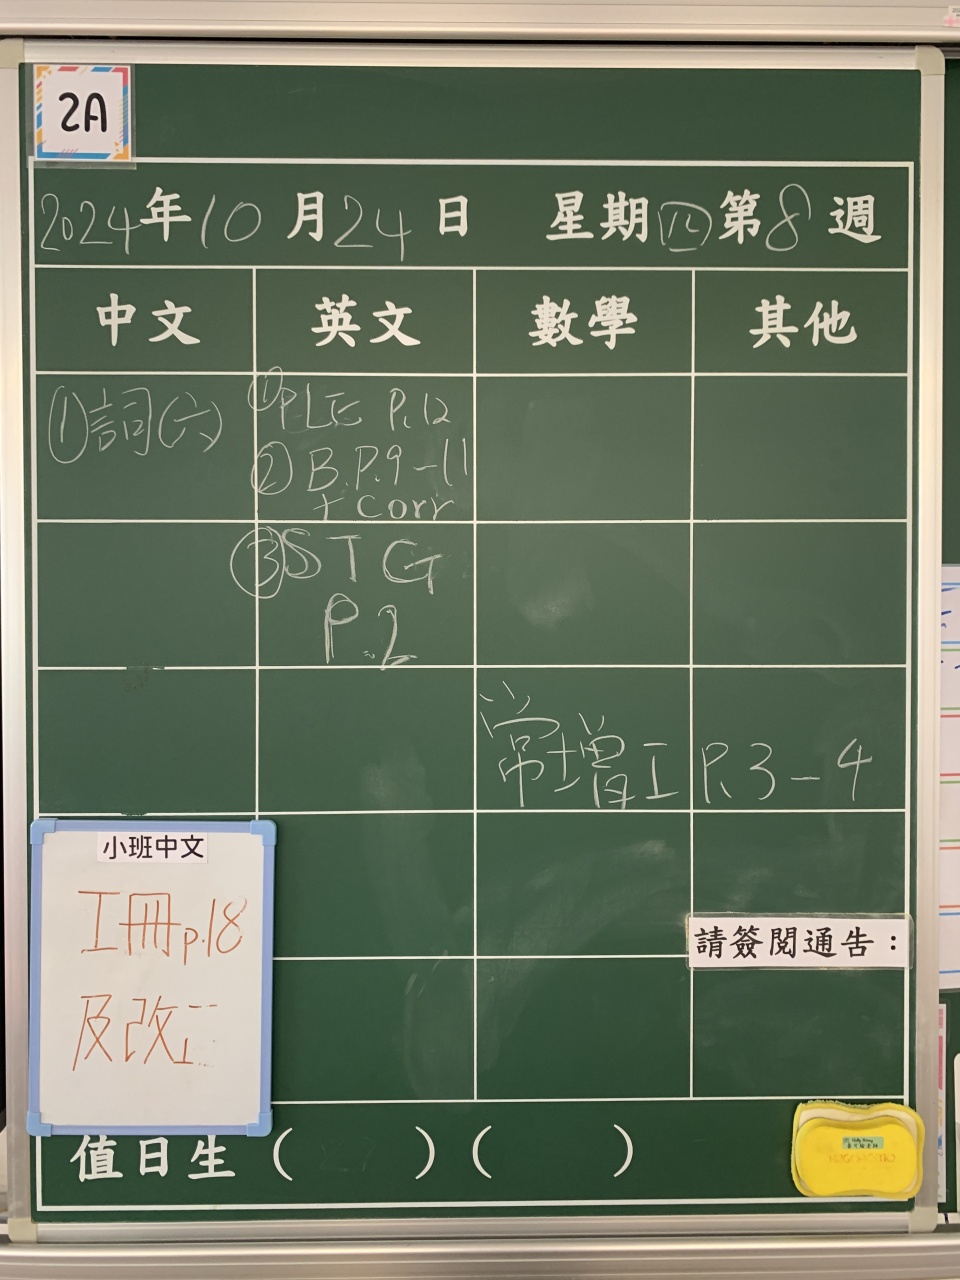 2A
2024年10月24日 星期四第8週
中文 英文 數學 其他
①詞(六)
①PLE P.12
②B.P.9-11
+ Corr
③STG
P.2
常增工 P.3-4
小班中文
工冊p.18
及改工
請簽閱通告：
值日生( )( )